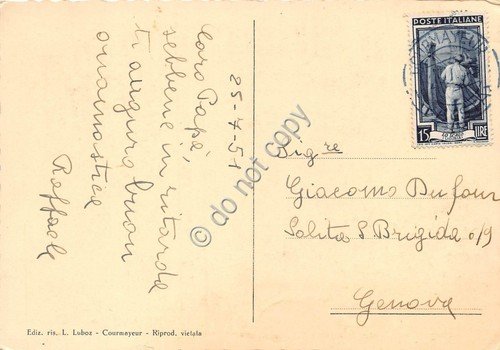 25-7-51
Caro Papà,
sebbene in ritardo
ti auguro buon
onomastico
Raffaele
POSTE ITALIANE
15 LIRE
Sig.re
Giacomo Dufour
Salita S. Brigida 0/9
Genova
Ediz. ris. L. Luboz - Courmayeur - Riprod. vietata
© do not copy